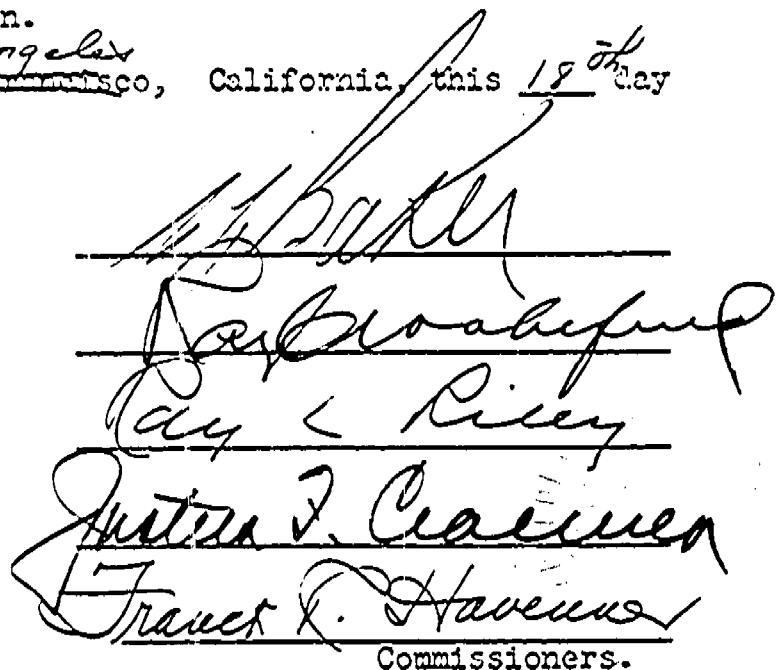 n.
Angeles
sco, California, this 18th day
Baker
Ray
Ray C Riley
Justus F. Craemer
Franck R. Havenner
Commissioners.